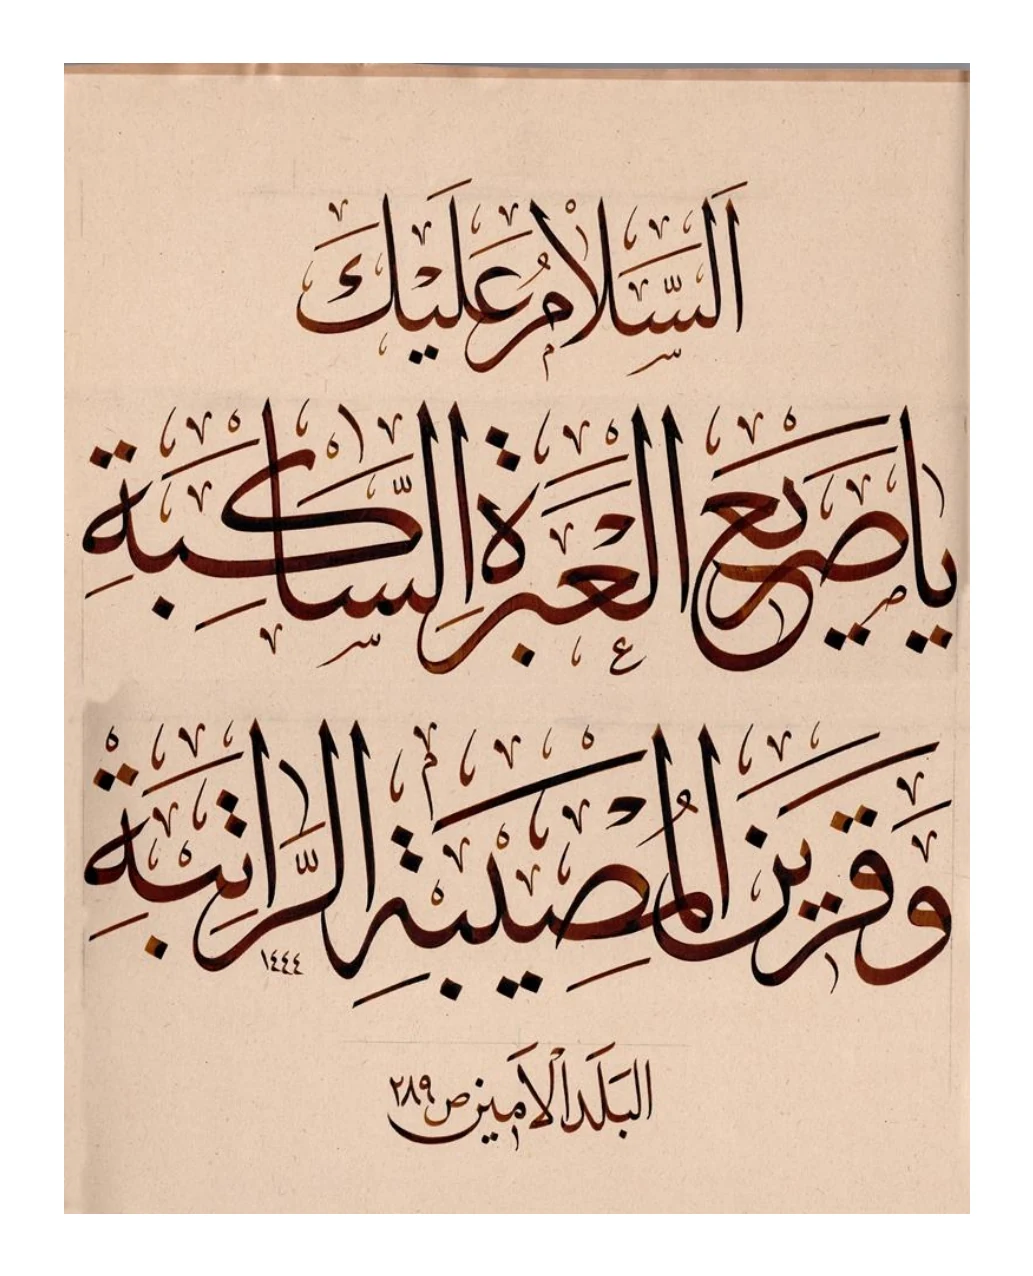 اَلسَّلامُ عَلَيْكَ
يا صَريعَ الْعَبْرَةِ السّاكِبَةِ
وَقَرينَ الْمُصيبَةِ الرّاتِبَةِ
١٤٤٤
البَلَد الاَمين ص ٢٨٩